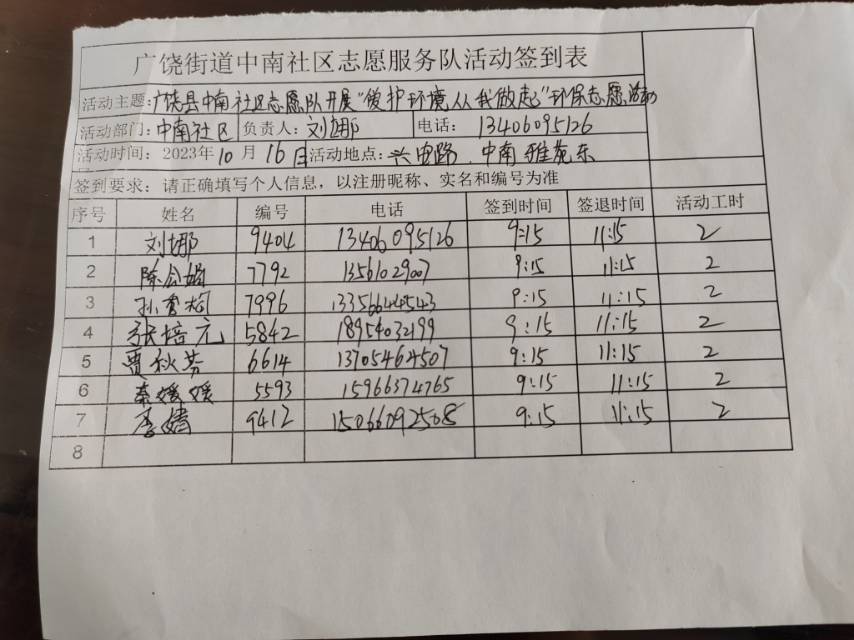 广饶街道中南社区志愿服务队活动签到表
活动主题：广饶县中南社区志愿队开展"爱护环境从我做起"环保志愿活动
活动部门：中南社区 负责人：刘娜 电话：13406095126
活动时间：2023年10月16日 活动地点：兴电路.中南雅苑东
签到要求：请正确填写个人信息，以注册昵称、实名和编号为准
序号 姓名 编号 电话 签到时间 签退时间 活动工时
1 刘娜 9404 13406095126 9:15 11:15 2
2 7792 9:15 11:15 2
3 7996 9:15 11:15 2
4 张培元 5842 9:15 11:15 2
5 贾秋芳 6614 13705464507 9:15 11:15 2
6 秦媛媛 5593 15966374765 9:15 11:15 2
7 9412 15066092508 9:15 11:15 2
8